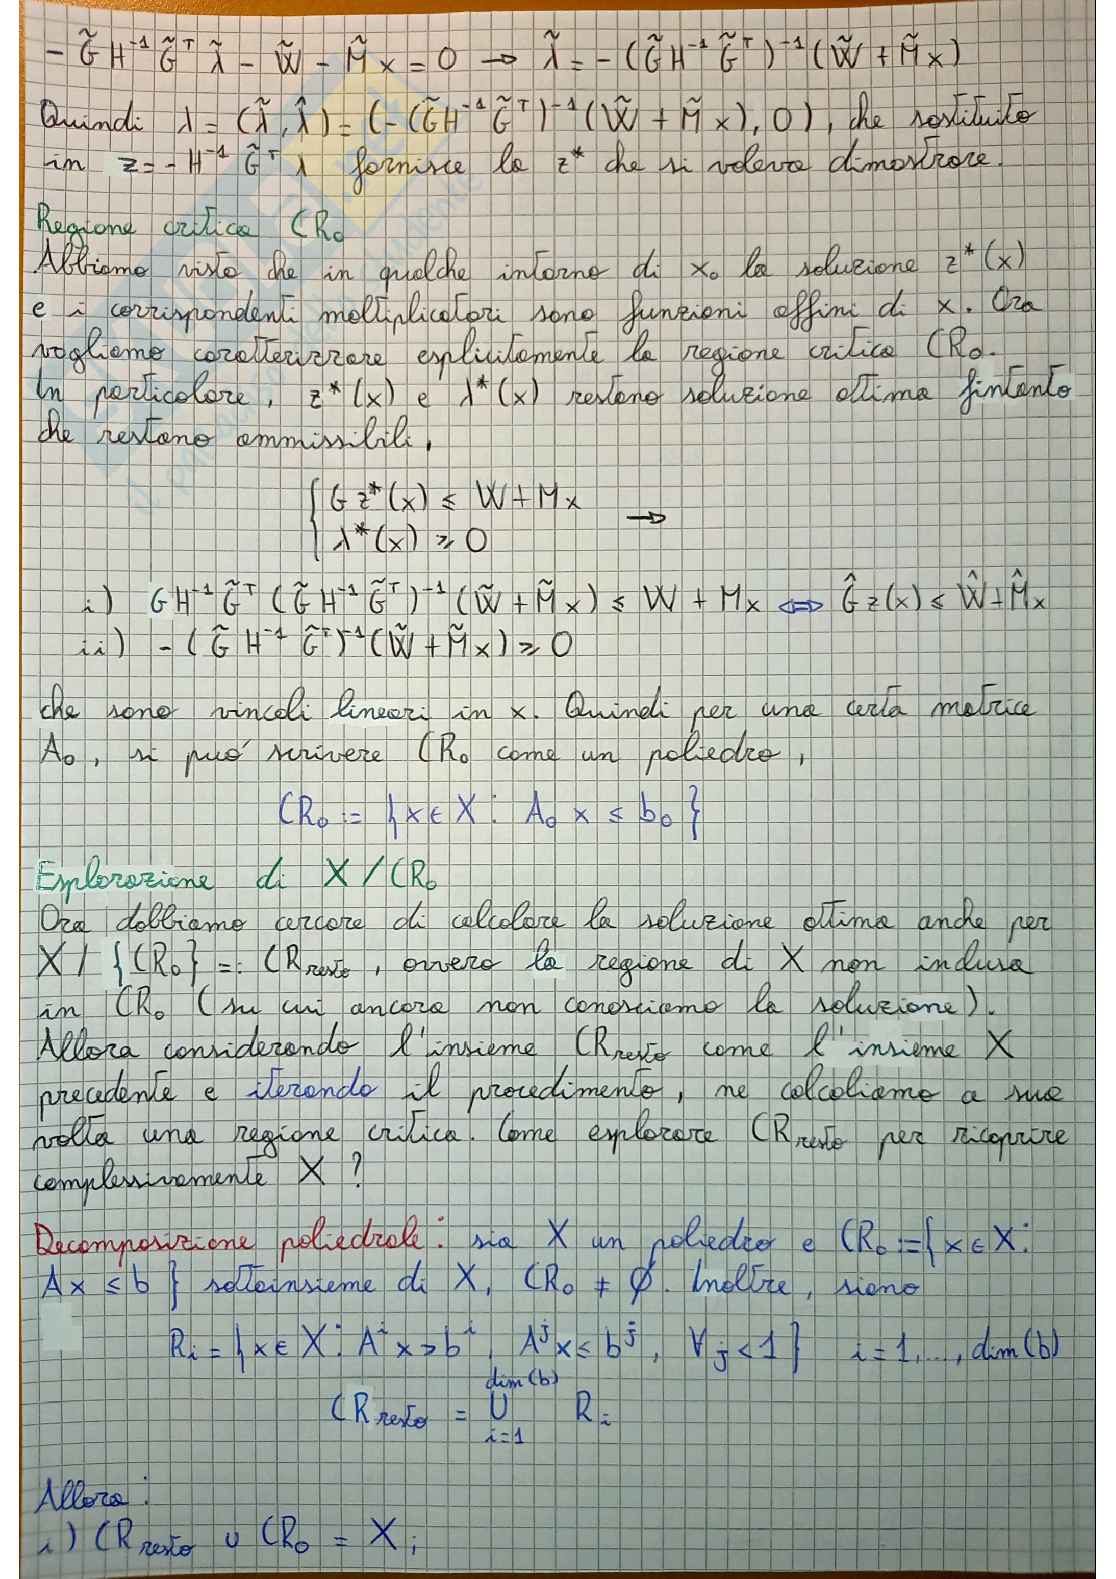 - G̃ H⁻¹ G̃ᵀ λ̃ - W̃ - M̃ x = 0 → λ̃ = - (G̃ H⁻¹ G̃ᵀ)⁻¹ (W̃ + M̃ x)
Quindi λ = (λ̃, λ̂) = (-(G̃ H⁻¹ G̃ᵀ)⁻¹ (W̃ + M̃ x), 0), che sostituito
in z = - H⁻¹ G̃ᵀ λ fornisce la z* che si voleva dimostrare.
Regione critica CR₀
Abbiamo visto che in qualche intorno di x₀ la soluzione z*(x)
e i corrispondenti moltiplicatori sono funzioni affini di x. Ora
vogliamo caratterizzare esplicitamente la regione critica CR₀.
In particolare, z*(x) e λ*(x) restano soluzione ottima fintanto
che restano ammissibili,
{ G z*(x) ≤ W + M x
λ*(x) ≥ 0 →
i) G H⁻¹ G̃ᵀ (G̃ H⁻¹ G̃ᵀ)⁻¹ (W̃ + M̃ x) ≤ W + M x ⇔ Ĝ z(x) ≤ Ŵ + M̂ x
ii) - (G̃ H⁻¹ G̃ᵀ)⁻¹ (W̃ + M̃ x) ≥ 0
che sono vincoli lineari in x. Quindi per una certa matrice
A₀, si puó scrivere CR₀ come un poliedro,
CR₀ := {x ∈ X : A₀ x ≤ b₀}
Esplorazione di X / CR₀
Ora dobbiamo cercare di calcolare la soluzione ottima anche per
X / {CR₀} =: CR resto, ovvero la regione di X non inclusa
in CR₀ (su cui ancora non conosciamo la soluzione).
Allora considerando l'insieme CR resto come l'insieme X
precedente e iterando il procedimento, ne calcoliamo a sua
volta una regione critica. Come esplorare CR resto per ricoprire
complessivamente X ?
Decomposizione poliedrale: sia X un poliedro e CR₀ := {x ∈ X :
A x ≤ b } sottoinsieme di X, CR₀ ≠ ∅. Inoltre, siano
Rᵢ = {x ∈ X : Aⁱ x > bⁱ, Aʲ x ≤ bʲ, ∀ j < 1} i = 1, ..., dim(b)
dim(b)
CR resto = ∪ Rᵢ
i=1
Allora:
i) CR resto ∪ CR₀ = X;